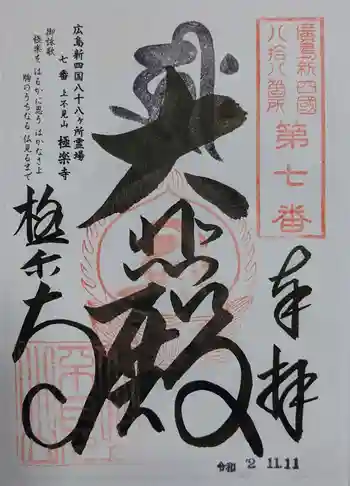 廣島新四國
八拾八箇所
第七番
奉拝
令和 2 11.11
大悲殿
広島新四国八十八ヶ所霊場
七番 上不見山 極楽寺
御詠歌
極楽を はるかに思う はかなさよ
胸のうちなる 仏見るまで
極楽寺